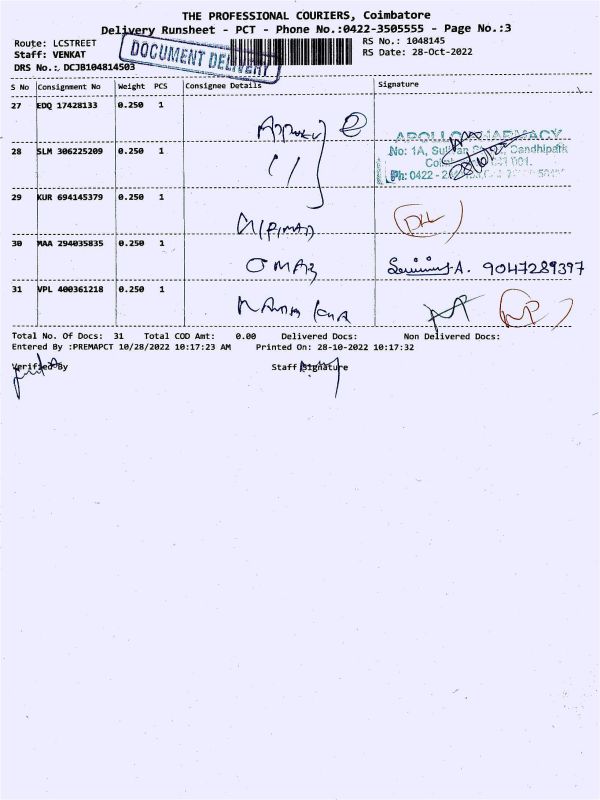 THE PROFESSIONAL COURIERS, Coimbatore
Delivery Runsheet - PCT - Phone No.:0422-3505555 - Page No.:3
Route: LCSTREET
RS No.: 1048145
Staff: VENKAT
RS Date: 28-Oct-2022
DRS No.: DCJB104814503
DOCUMENT DELIVERY
S No Consignment No Weight PCS Consignee Details Signature
27 EDQ 17428133 0.250 1
APOLLO PHARMACY
28 SLM 306225209 0.250 1
No: 1A, Gandhipark
28/10/22
Ph: 0422 -
29 KUR 694145379 0.250 1
30 MAA 294035835 0.250 1
A. 9047289397
31 VPL 400361218 0.250 1
Total No. Of Docs: 31 Total COD Amt: 0.00 Delivered Docs: Non Delivered Docs:
Entered By :PREMAPCT 10/28/2022 10:17:23 AM Printed On: 28-10-2022 10:17:32
Verified By Staff Signature